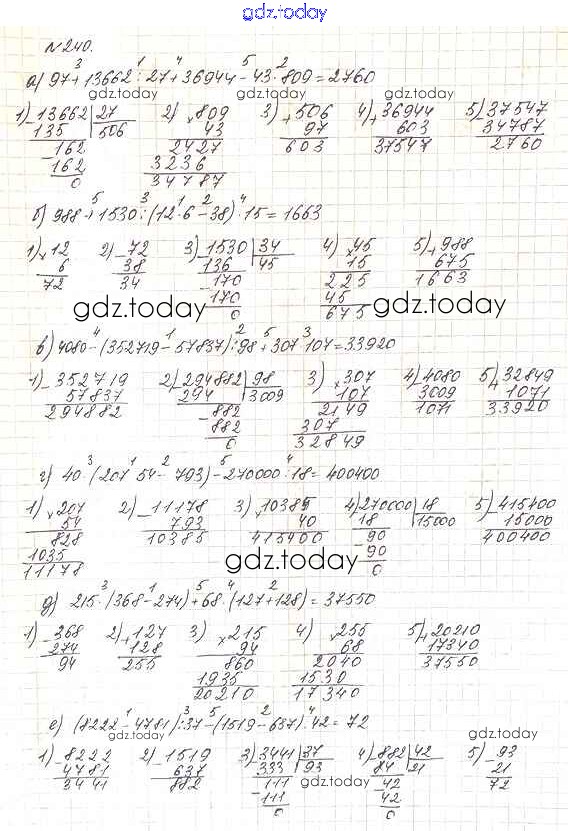 gdz.today
№240.
3 1 4 5 2
а) 97+13662:27+36944-43·809=2760
gdz.today gdz.today
1) -13662 | 27 2) ×809 3) +506 4) +36944 5) -37547
135 506 43 97 603 34787
-162 2427 603 37547 2760
162 3236
0 34787
5 3 1 2 4
б) 988+1530:(12·6-38)·15=1663
1) ×12 2) -72 3) -1530 | 34 4) ×45 5) +988
6 38 136 45 15 675
72 34 -170 225 1663
170 45
0 675
gdz.today gdz.today
4 1 2 5 3
в) 4080-(352719-57837):98+307·107=33920
1) -352719 2) -294882 | 98 3) ×307 4) -4080 5) +32849
57837 294 3009 107 3009 1071
294882 -882 2149 1071 33920
882 307
0 32849
3 1 2 5 4
г) 40·(207·54-793)-270000:18=400400
1) ×207 2) -11178 3) ×10385 4) -270000 | 18 5) -415400
54 793 40 18 15000 15000
828 10385 415400 -90 400400
1035 90
11178 0
gdz.today
3 1 5 4 2
д) 215·(368-274)+68·(127+128)=37550
1) -368 2) +127 3) ×215 4) ×255 5) +20210
274 128 94 68 17340
94 255 860 2040 37550
1935 1530
20210 17340
1 3 5 2 4
е) (8222-4781):37-(1519-637):42=72
gdz.today gdz.today
1) -8222 2) -1519 3) -3441 | 37 4) -882 | 42 5) -93
4781 637 333 93 84 21 21
3441 882 -111 -42 72
111 42
0 0
gdz.today